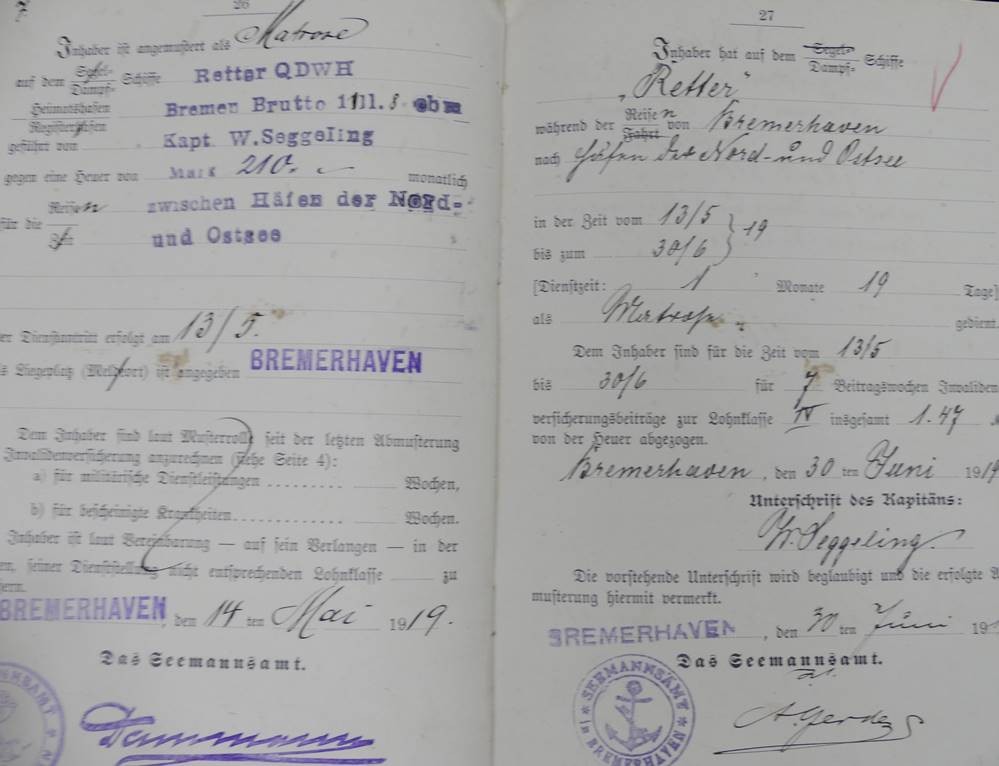 26
Inhaber ist angemustert als Matrose
auf dem Segel- Dampf- Schiffe Retter QDWH
Heimatshafen Bremen Brutto 1111.8 cbm
Registerhafen
geführt von Kapt W.Seggeling
gegen eine Heuer von Mark 210.- monatlich
für die Reisen zwischen Häfen der Nord-
Zeit und Ostsee
er Dienstantritt erfolgt am 13/5.
s Liegeplatz (Meldeort) ist angegeben BREMERHAVEN
Dem Inhaber sind laut Musterrolle seit der letzten Abmusterung
Invalidenversicherung anzurechnen (siehe Seite 4):
a) für militärische Dienstleistungen ......... Wochen,
b) für bescheinigte Krankheiten............. Wochen.
Inhaber ist laut Vereinbarung — auf sein Verlangen — in der
en, seiner Dienststellung nicht entsprechenden Lohnklasse zu
ern.
BREMERHAVEN, den 14 ten Mai 1919.
Das Seemannsamt.
27
Inhaber hat auf dem Segel- Dampf- Schiffe
„Retter"
während der Reisen Fahrt von Bremerhaven
nach Häfen der Nord- und Ostsee
in der Zeit vom 13/5
bis zum 30/6 } 19
[Dienstzeit: 1 Monate 19 Tage]
als Matrose gedient
Dem Inhaber sind für die Zeit vom 13/5
bis 30/6 für 7 Beitragswochen Invaliden
versicherungsbeiträge zur Lohnklasse IV insgesamt 1.47
von der Heuer abgezogen.
Bremerhaven, den 30 ten Juni 191
Unterschrift des Kapitäns:
W. Seggeling.
Die vorstehende Unterschrift wird beglaubigt und die erfolgte A
musterung hiermit vermerkt.
BREMERHAVEN, den 30 ten Juni 19
Das Seemannsamt.
SEEMANNSAMT
IN BREMERHAVEN
A. Gerdes